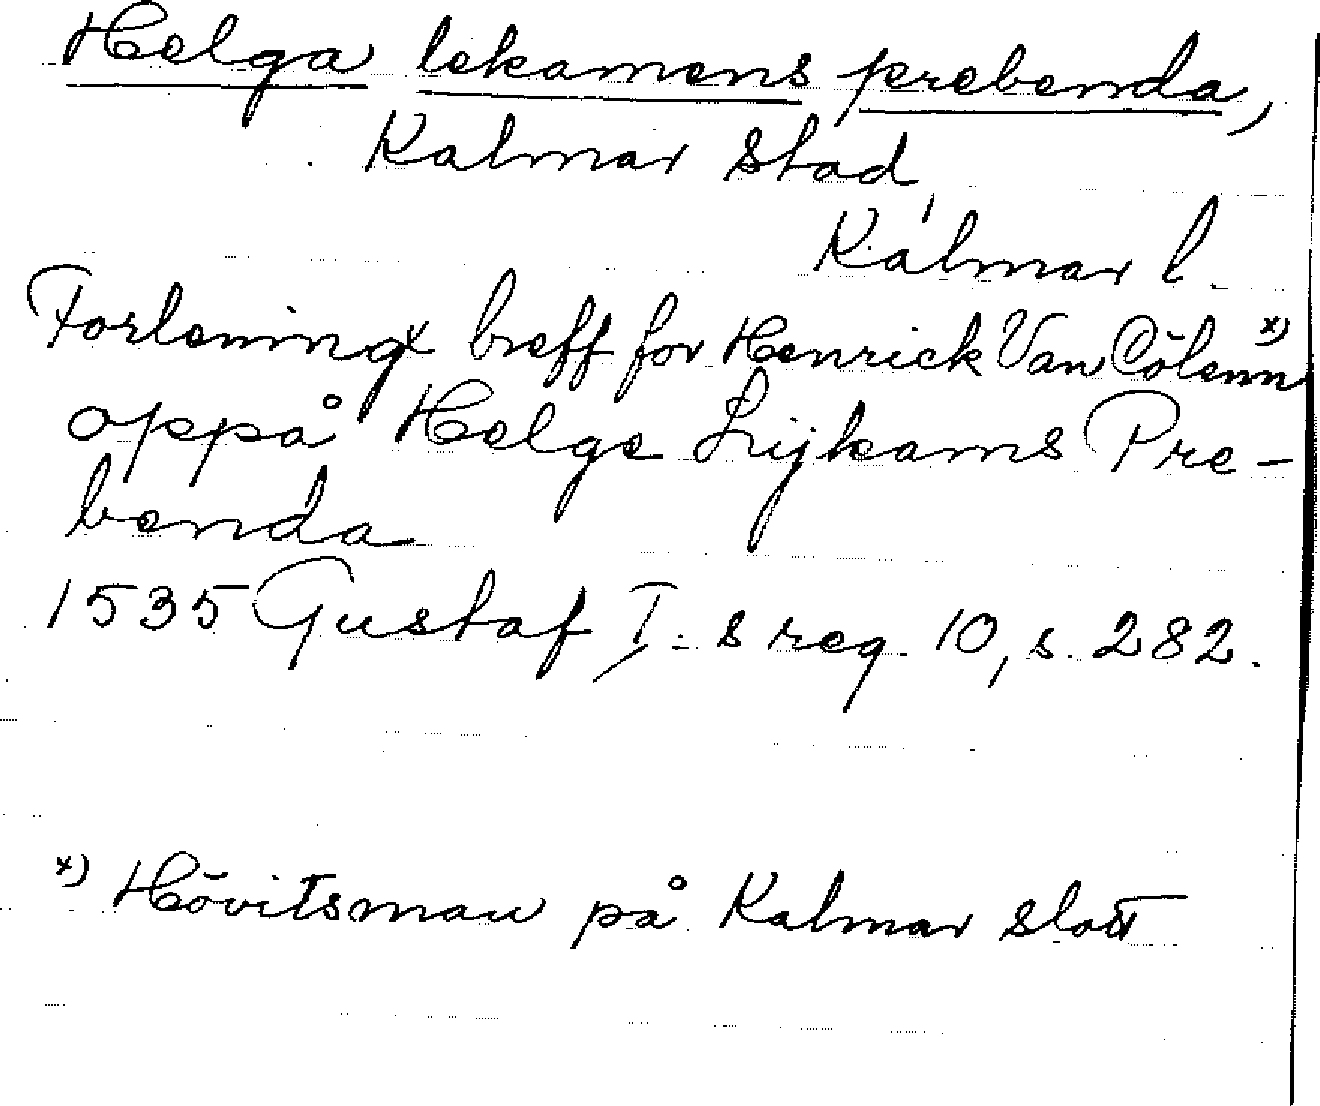 Helga lekamens prebenda,
Kalmar stad,
Kalmar l.
Forleningx breff for Henrick Van Cölenn x)
oppå Helge Lijkams Pre-
benda
1535 Gustaf I:s reg. 10, s. 282.
x) Hövitsman på Kalmar slott